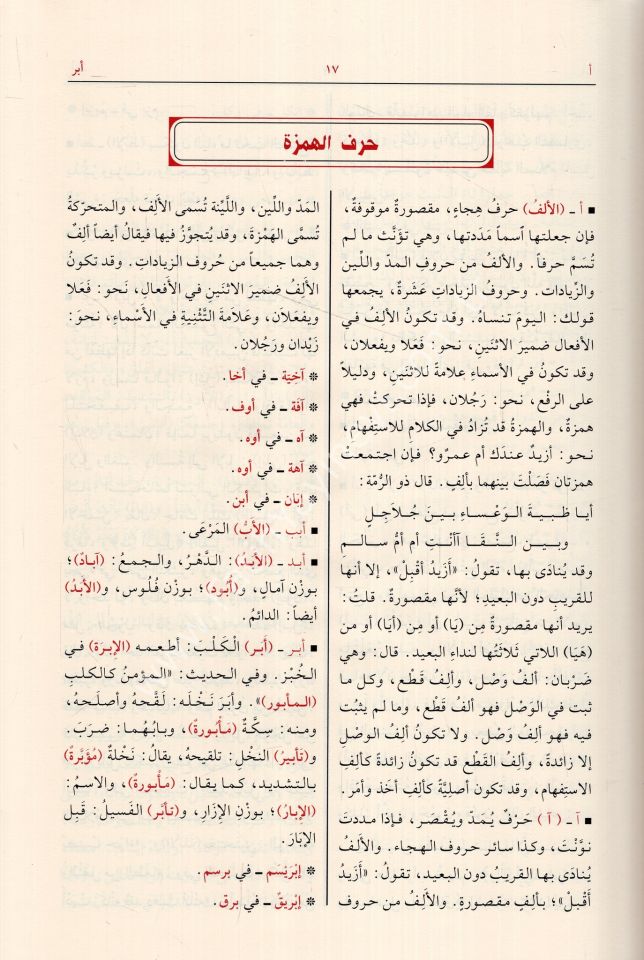 أ
١٧
أبر
حرف الهمزة
■ أ ـ (الألفُ) حرفُ هِجاءٍ، مقصورةٌ موقوفة،
فإن جعلتها ٱسماً مَدَدتها، وهي تؤنَّث ما لم
تُسَمَّ حرفاً. والألفُ من حروفِ المدّ واللّين
والزّيادات. وحروفُ الزيادات عَشَرة، يجمعها
قولـك: اليومَ تنساهُ. وقد تكونُ الألفُ في
الأفعال ضميرَ الاثنين، نحو: فَعَلا ويفعلان،
وقد تكون في الأسماءِ علامةً للاثنين، ودليلاً
على الرفْعِ، نحوُ: رَجُلان، فإذا تحركتْ فهي
همزةٌ، والهمزةُ قد تُزادُ في الكلام للاستِفهام،
نحو: أزيدٌ عندَك أم عمرو؟ فإن اجتمعتْ
همزتان فَصَلْتَ بينهما بألِفٍ. قال ذو الرُّمّة:
أيا ظَبيـةَ الـوَعْسـاءِ بيـنَ جُـلاَجـلٍ
وبيـن النَّقـا آأنْـتِ أم أمُّ سـالـمِ
وقد يُنادَى بها، تقولُ: «أَزَيدُ أقْبِلْ»، إلا أنها
للقريبِ دون البعيدِ؛ لأنَّها مقصورةٌ. قلتُ:
يريد أنها مقصورةٌ مِن (يَا) أو مِن (أيَا) أو من
(هَيَا) اللاتي ثلاثتُها لنداءِ البعيد. قال: وهي
ضَرْبان: ألفُ وَصْل، وألفُ قَطْع، وكل ما
ثبت في الوَصْل فهو ألفُ قَطْع، وما لم يثبُت
فيه فهو ألِفُ وَصْل. ولا تكونُ ألفُ الوصلِ
إلا زائدة، وألِفُ القَطْع قد تكونُ زائدةً كألِفِ
الاستِفهام، وقد تكون أصليَّةً كألفِ أخَذ وأمَر.
■ آ ـ (آ) حَرْفٌ يُمَدّ ويُقْصَر، فإذا مددتَ
نوَّنْتَ، وكذا سائر حروف الهجاء. والألفُ
يُنادَى بها القريبُ دون البعيد، تقولُ: «أزَيدُ
أقْبل»؛ بألِفٍ مقصورةٍ. والألِفُ من حروف
المَدّ واللّين، واللّيّنة تُسَمى الألِفَ، والمتحركةُ
تُسمَّى الهَمْزةَ، وقد يُتجوَّز فيها فيقالُ أيضاً ألِفٌ
وهما جميعاً من حُروف الزيادات. وقد تكونُ
الألِفُ ضميرَ الاثنَين في الأفعال، نحو: فَعَلا
ويفعَلاَن، وعَلامَةَ التَّثنِية في الأسْماءِ، نحوَ:
زَيْدان ورَجُلان.
* آخيّة ـ في أخا.
* آفَة ـ في أوف.
* آه ـ في أوه.
* آهة ـ في أوه.
* إبّان ـ في أبن.
■ أبب ـ (الأَبُّ) المَرْعَى.
■ أبـد ـ (الأبَدُ): الدَّهْرُ، والجمعُ: (آبادٌ)؛
بوزن آمالٍ، و(أُبُود)؛ بوزْن فُلُوس، و(الأبَدُ)
أيضاً: الدائمُ.
■ أبـر ـ (أبَر) الكَلْبَ: أطعمه (الإبرَة) في
الخُبْز. وفي الحديث: «المؤمنُ كالكلبِ
(المـأبور)». وأبَرَ نَخْلَه: لَقَّحهُ وأصلَحهُ،
ومنه: سِكَّةٌ (مَأبُورةٌ)، وبابُهُما: ضرَبَ.
و(تأبيرُ) النخْلِ: تلقيحُه، يقالُ: نَخْلةٌ (مُؤَبَّرةٌ)
بالتشديد، كما يقال: (مَأبُورةٌ)، والاسمُ:
(الإبارُ)؛ بوزْنِ الإزَارِ، و(تأبَّر) الفَسيلُ: قَبِل
الإبَارَ.
* إبْرَيْسَم ـ في برسم.
* إبْريقٌ ـ في برق.